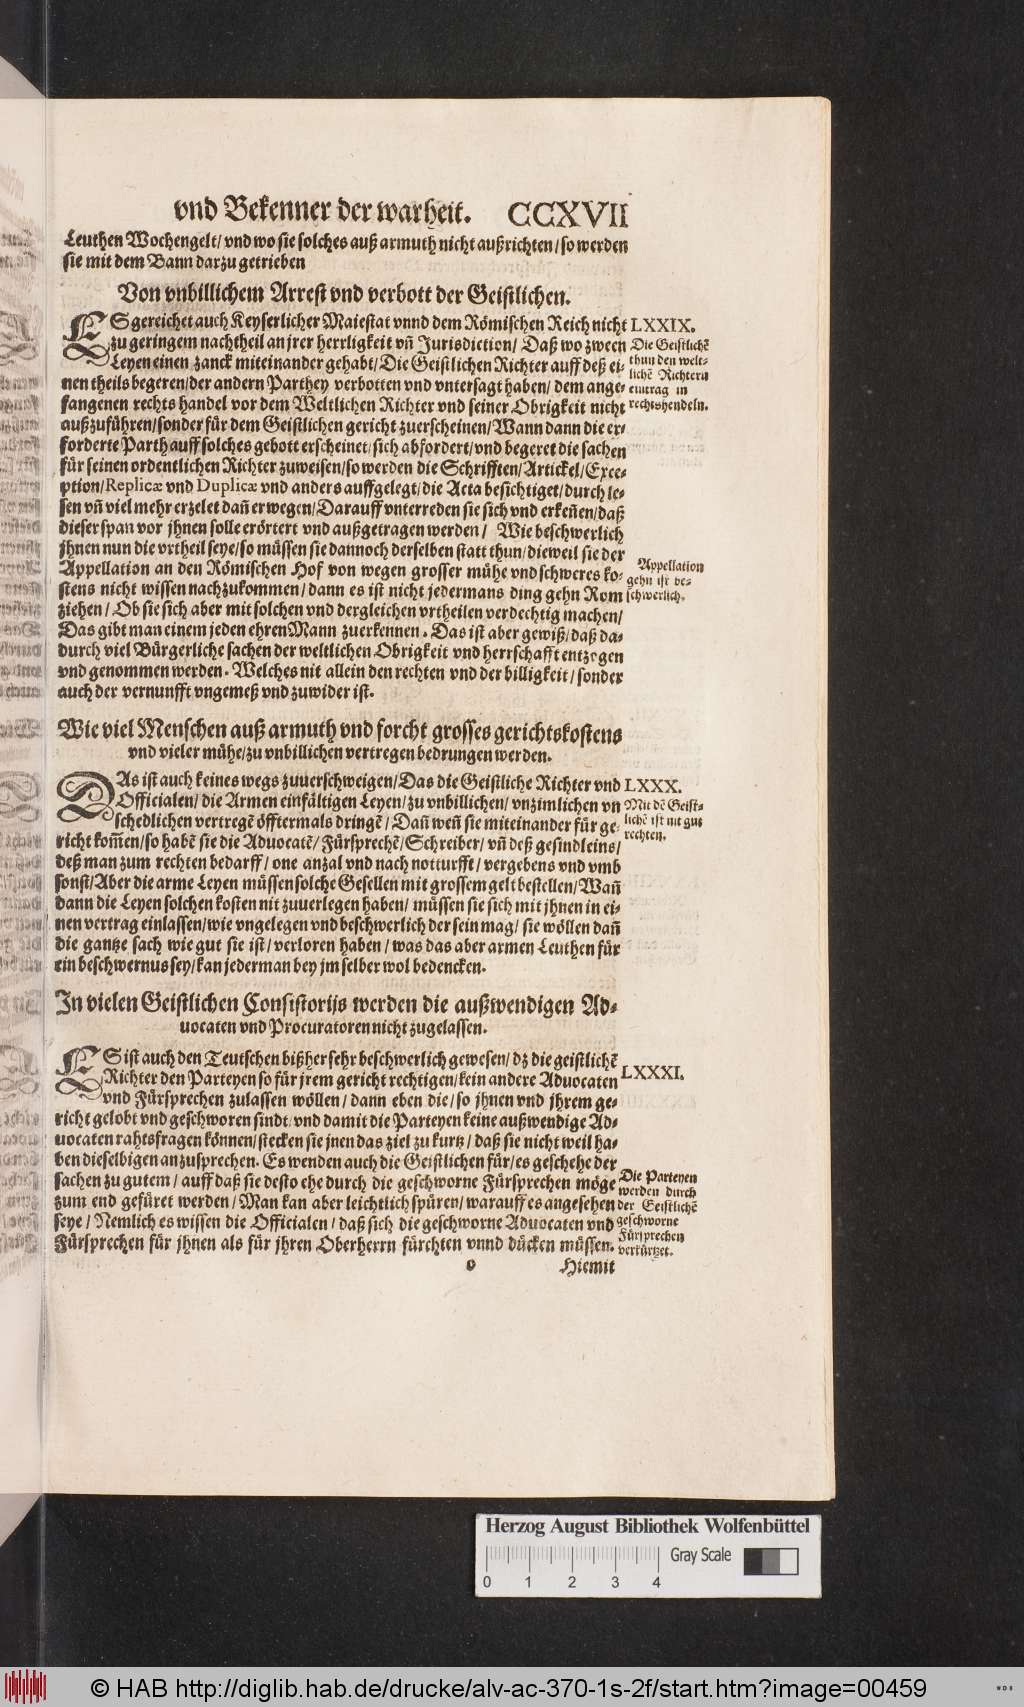 vnd Bekenner der warheit. CCXVII
Leuthen Wochengelt/ vnd wo sie solches auß armuth nicht außrichten/ so werden
sie mit dem Bann darzu getrieben
Von vnbillichem Arrest vnd verbott der Geistlichen.
ES gereichet auch Keyserlicher Maiestat vnnd dem Römischen Reich nicht
zu geringem nachtheil an jrer herrligkeit vñ Jurisdiction/ Daß wo zween
Leyen einen zanck miteinander gehabt/ Die Geistlichen Richter auff deß ei-
nen theils begeren/ der andern Parthey verbotten vnd vntersagt haben/ dem ange-
fangenen rechts handel vor dem Weltlichen Richter vnd seiner Obrigkeit nicht
außzuführen/ sonder für dem Geistlichen gericht zuerscheinen/ Wann dann die er-
forderte Parth auff solches gebott erscheinet/ sich abfordert/ vnd begeret die sachen
für seinen ordentlichen Richter zuweisen/ so werden die Schrifften/ Artickel/ Exce-
ption/ Replicæ vnd Duplicæ vnd anders auffgelegt/ die Acta besichtiget/ durch le-
sen vñ viel mehr erzelet dañ erwegen/ Darauff vnterreden sie sich vnd erkeñen/ daß
dieser span vor jhnen solle erörtert vnd außgetragen werden/ Wie beschwerlich
jhnen nun die vrtheil seye/ so müssen sie dannoch derselben statt thun/ dieweil sie der
Appellation an den Römischen Hof von wegen grosser mühe vnd schweres ko-
stens nicht wissen nachzukommen/ dann es ist nicht jedermans ding gehn Rom
ziehen/ Ob sie sich aber mit solchen vnd dergleichen vrtheilen verdechtig machen/
Das gibt man einem jeden ehren Mann zuerkennen. Das ist aber gewiß/ daß da-
durch viel Bürgerliche sachen der weltlichen Obrigkeit vnd herrschafft entzogen
vnd genommen werden. Welches nit allein den rechten vnd der billigkeit/ sonder
auch der vernunfft vngemeß vnd zuwider ist.
LXXIX.
Die Geistlichē
thun den welt-
lichē Richtern
eintrag in
rechtshendeln.
Appellation
gehn ist be-
schwerlich.
Wie viel Menschen auß armuth vnd forcht grosses gerichtskostens
vnd vieler mühe/ zu vnbillichen vertregen bedrungen werden.
DAs ist auch keines wegs zuuerschweigen/ Das die Geistliche Richter vnd
Officialen/ die Armen einfältigen Leyen/ zu vnbillichen/ vnzimlichen vñ
schedlichen vertregē öfftermals dringē/ Dañ weñ sie miteinander für ge-
richt kom̃en/ so habē sie die Aduocatē/ Fürsprechē/ Schreiber/ vñ deß gesindleins/
deß man zum rechten bedarff/ one anzal vnd nach notturfft/ vergebens vnd vmb
sonst/ Aber die arme Leyen müssen solche Gesellen mit grossem gelt bestellen/ Wañ
dann die Leyen solchen kosten nit zuuerlegen haben/ müssen sie sich mit jhnen in ei-
nen vertrag einlassen/ wie vngelegen vnd beschwerlich der sein mag/ sie wöllen dañ
die gantze sach wie gut sie ist/ verloren haben/ was das aber armen Leuthen für
ein beschwernus sey/ kan jederman bey jm selber wol bedencken.
LXXX.
Mit dē Geist-
lichē ist nit gut
rechten.
In vielen Geistlichen Consistorijs werden die außwendigen Ad-
uocaten vnd Procuratoren nicht zugelassen.
ES ist auch den Teutschen bißher sehr beschwerlich gewesen/ dz die geistlichē
Richter den Parteyen so für jrem gericht rechtigen/ kein andere Aduocaten
vnd Fürsprechen zulassen wöllen/ dann eben die/ so jhnen vnd jhrem ge-
richt gelobt vnd geschworen sindt/ vnd damit die Parteyen keine außwendige Ad-
uocaten rahtsfragen können/ stecken sie jnen das ziel zu kurtz/ daß sie nicht weil ha-
ben dieselbigen anzusprechen. Es wenden auch die Geistlichen für/ es geschehe der
sachen zu gutem/ auff daß sie desto ehe durch die geschworne Fürsprechen möge
zum end gefüret werden/ Man kan aber leichtlich spüren/ warauff es angesehen
seye/ Nemlich es wissen die Officialen/ daß sich die geschworne Aduocaten vnd
Fürsprechen für jhnen als für jhren Oberherrn fürchten vnnd dücken müssen.
LXXXI.
Die Parteyen
werden durch
der Geistlichē
geschworne
Fürsprechen
verkürtzet.
o Hiemit
Herzog August Bibliothek Wolfenbüttel
Gray Scale
0 1 2 3 4
© HAB http://diglib.hab.de/drucke/alv-ac-370-1s-2f/start.htm?image=00459